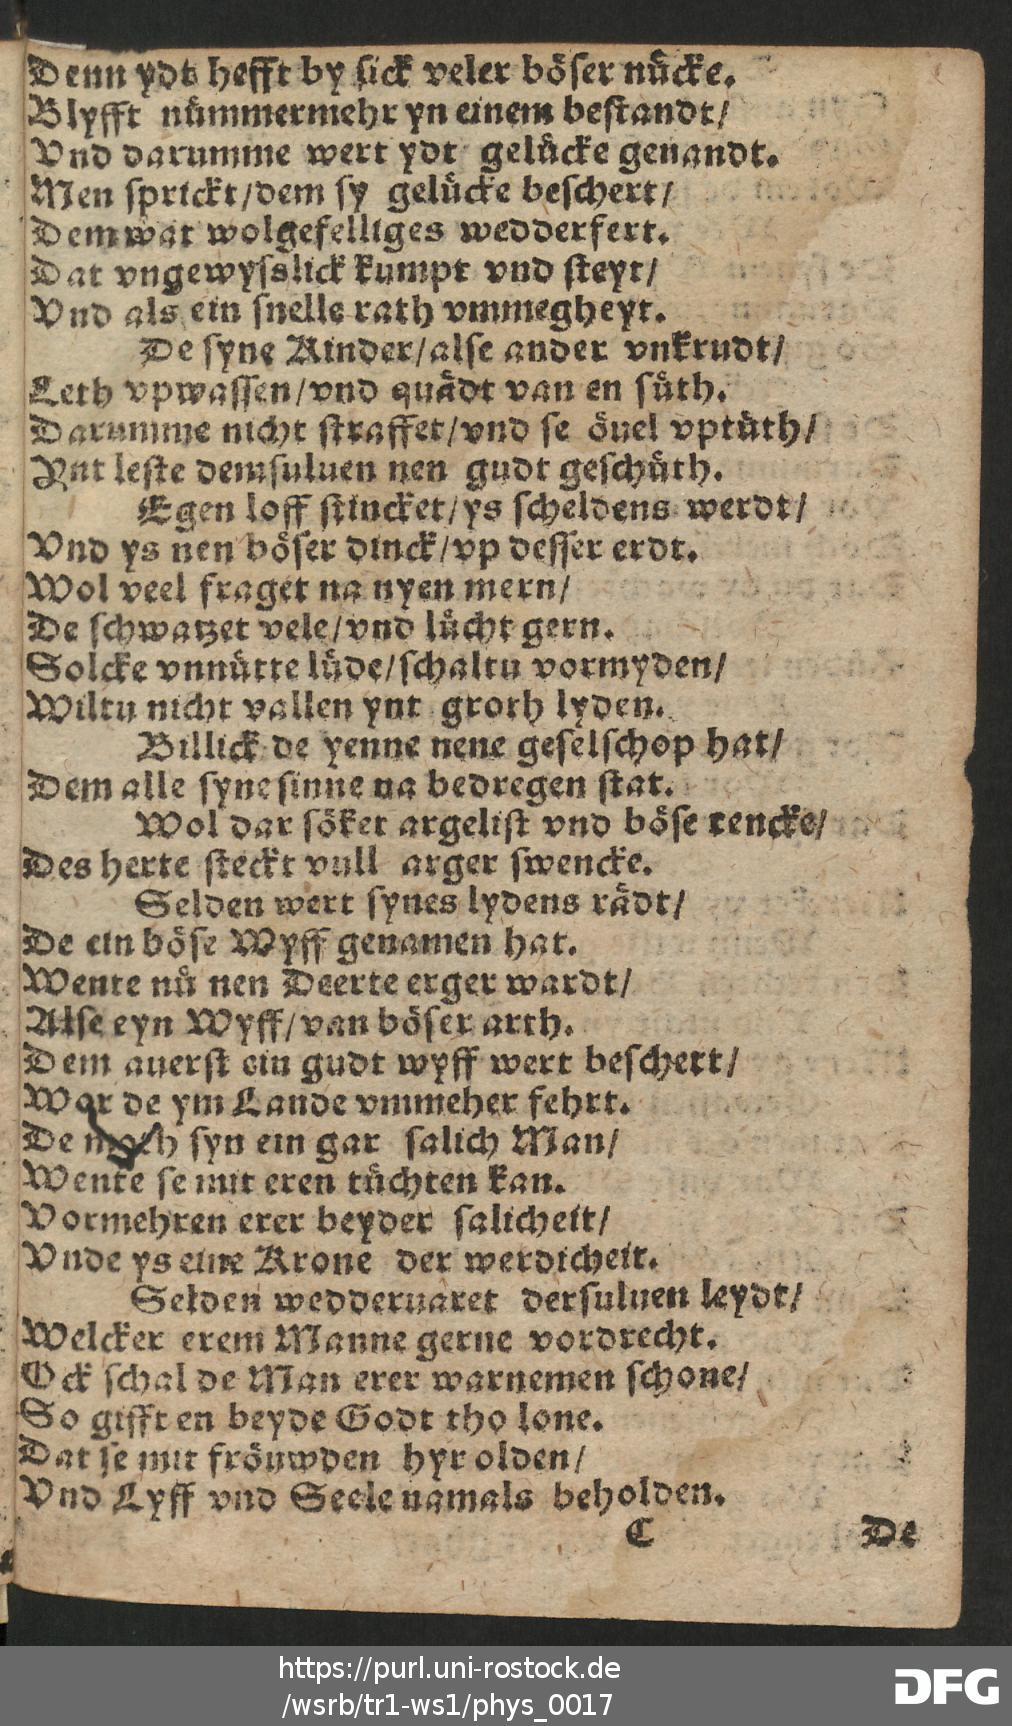 Denn ydt hefft by sick veler böser nücke.
Blyfft nümmermehr yn einem bestandt/
Vnd darumme wert ydt gelücke genandt.
Men sprickt/dem sy gelücke beschert/
Dem wat wolgefelliges wedderfert.
Dat vngewysslick kumpt vnd steyt/
Vnd als ein snelle rath vmmegheyt.
De syne Kinder/alse ander vnkrudt/
Leth vpwassen/vnd quädt van en süth.
Darumme nicht straffet/vnd se öuel vptüth/
Ynt leste demsuluen nen gudt geschüth.
Egen loff stincket/ys scheldens werdt/
Vnd ys nen böser dinck/vp desser erdt.
Wol veel fraget na nyen mern/
De schwatzet vele/vnd lücht gern.
Solcke vnnütte lüde/schaltu vormyden/
Wiltu nicht vallen ynt groth lyden.
Billick de yenne nene geselschop hat/
Dem alle syne sinne na bedregen stat.
Wol dar söket argelist vnd böse rencke/
Des herte steckt vull arger swencke.
Selden wert synes lydens rädt/
De ein böse Wyff genamen hat.
Wente nü nen Deerte erger wardt/
Alse eyn Wyff/van böser arth.
Dem auerst ein gudt wyff wert beschert/
War de ym Lande vmmeher fehrt.
De moth syn ein gar salich Man/
Wente se mit eren tüchten kan.
Vormehren erer beyder salicheit/
Vnde ys eine Krone der werdicheit.
Selden wedderuaret dersuluen leydt/
Welcker erem Manne gerne vordrecht.
Ock schal de Man erer warnemen schone/
So gifft en beyde Godt tho lone.
Dat se mit fröuwden hyr olden/
Vnd Lyff vnd Seele namals beholden.
C De
https://purl.uni-rostock.de
/wsrb/tr1-ws1/phys_0017
DFG